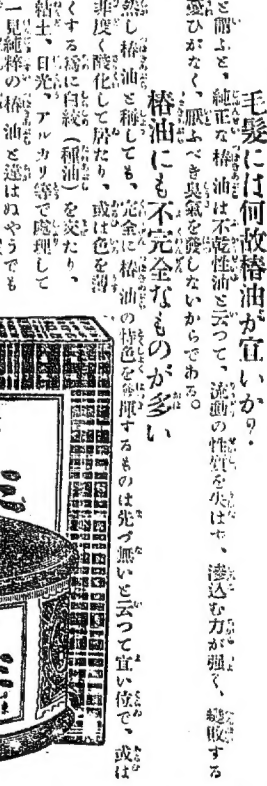 毛髪には何故椿油が宜いか?
と爵ふと、純正な椿油は不乾性油と云つて、流動の性質を失はず、滲込む力が強く、變敗する
憂ひがなく、厭ふべき臭氣を發しないからである。
椿油にも不完全なものが多い
然し椿油と稱しても、完全に椿油の特色を發揮するものは先づ無いと云つて宜い位で、或は
非度く酸化して居たり、或は色を薄
くする爲に白絞(種油)を交たり、
粘土、日光、アルカリ等で處理して
一見純粹の椿油と違はぬやうでも